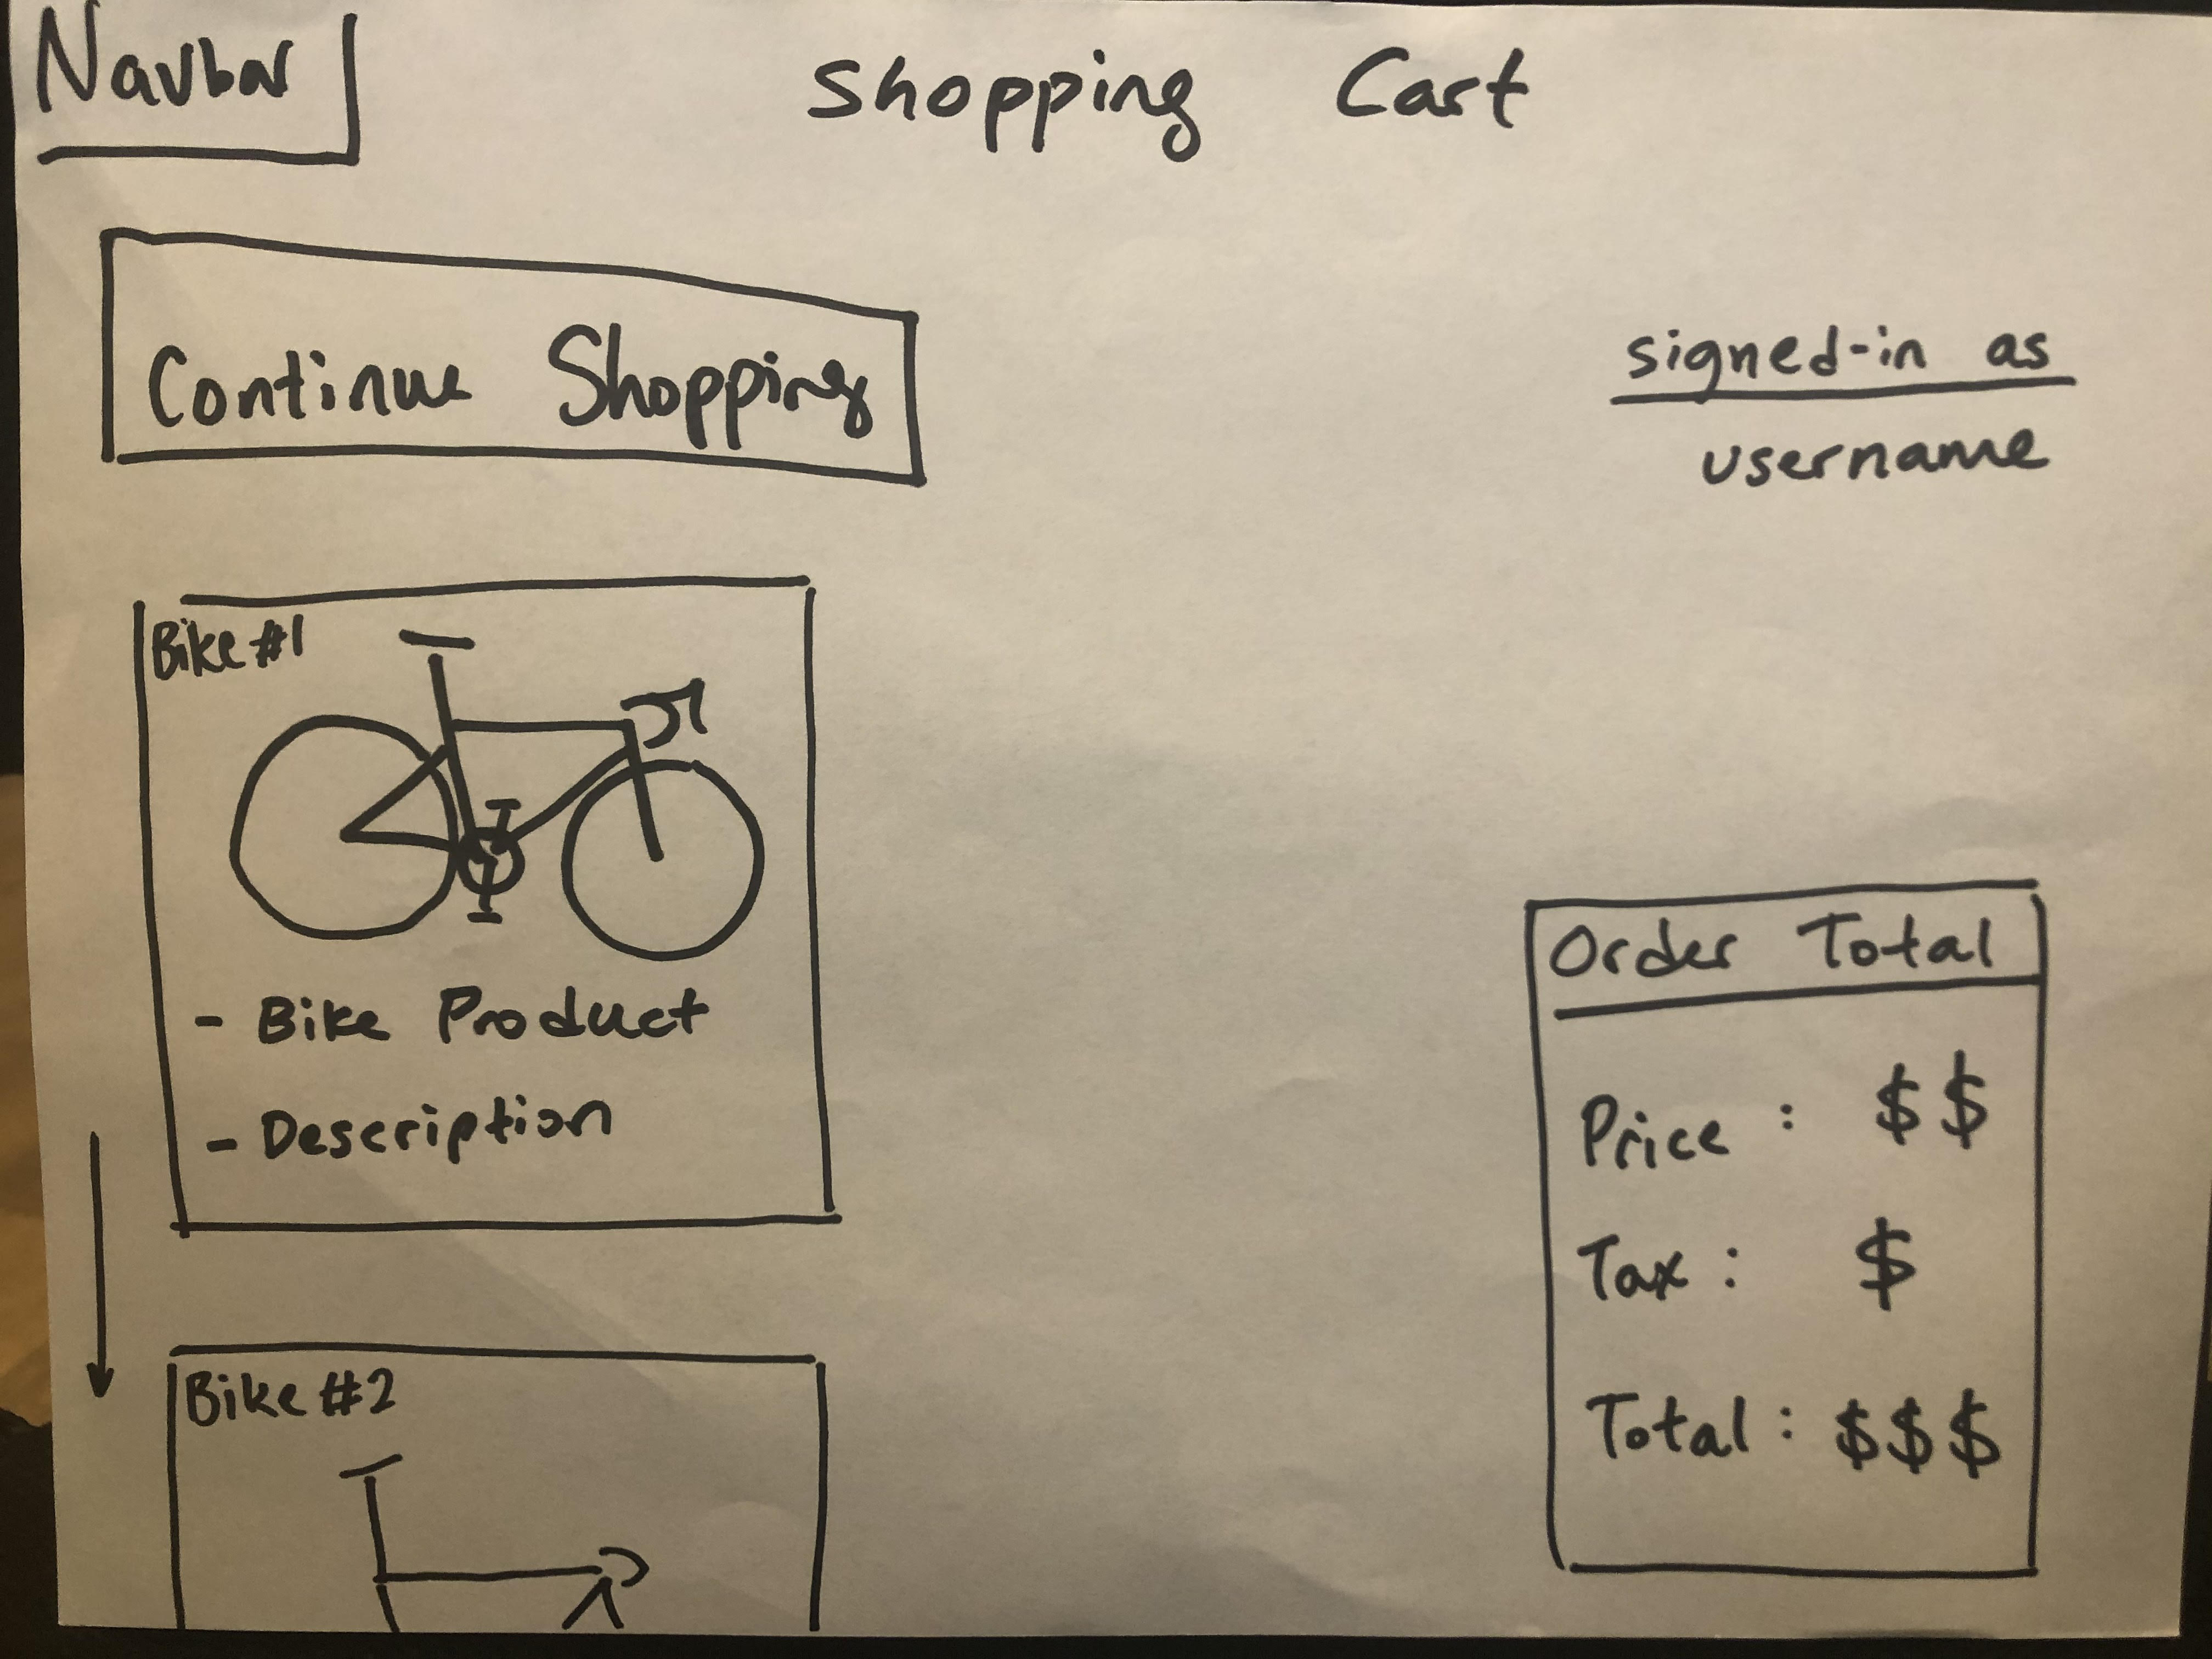 Navbar
Shopping Cart
Continue Shopping
signed-in as
username
Bike #1
- Bike Product
- Description
Bike #2
Order Total
Price : $$
Tax : $
Total : $$$